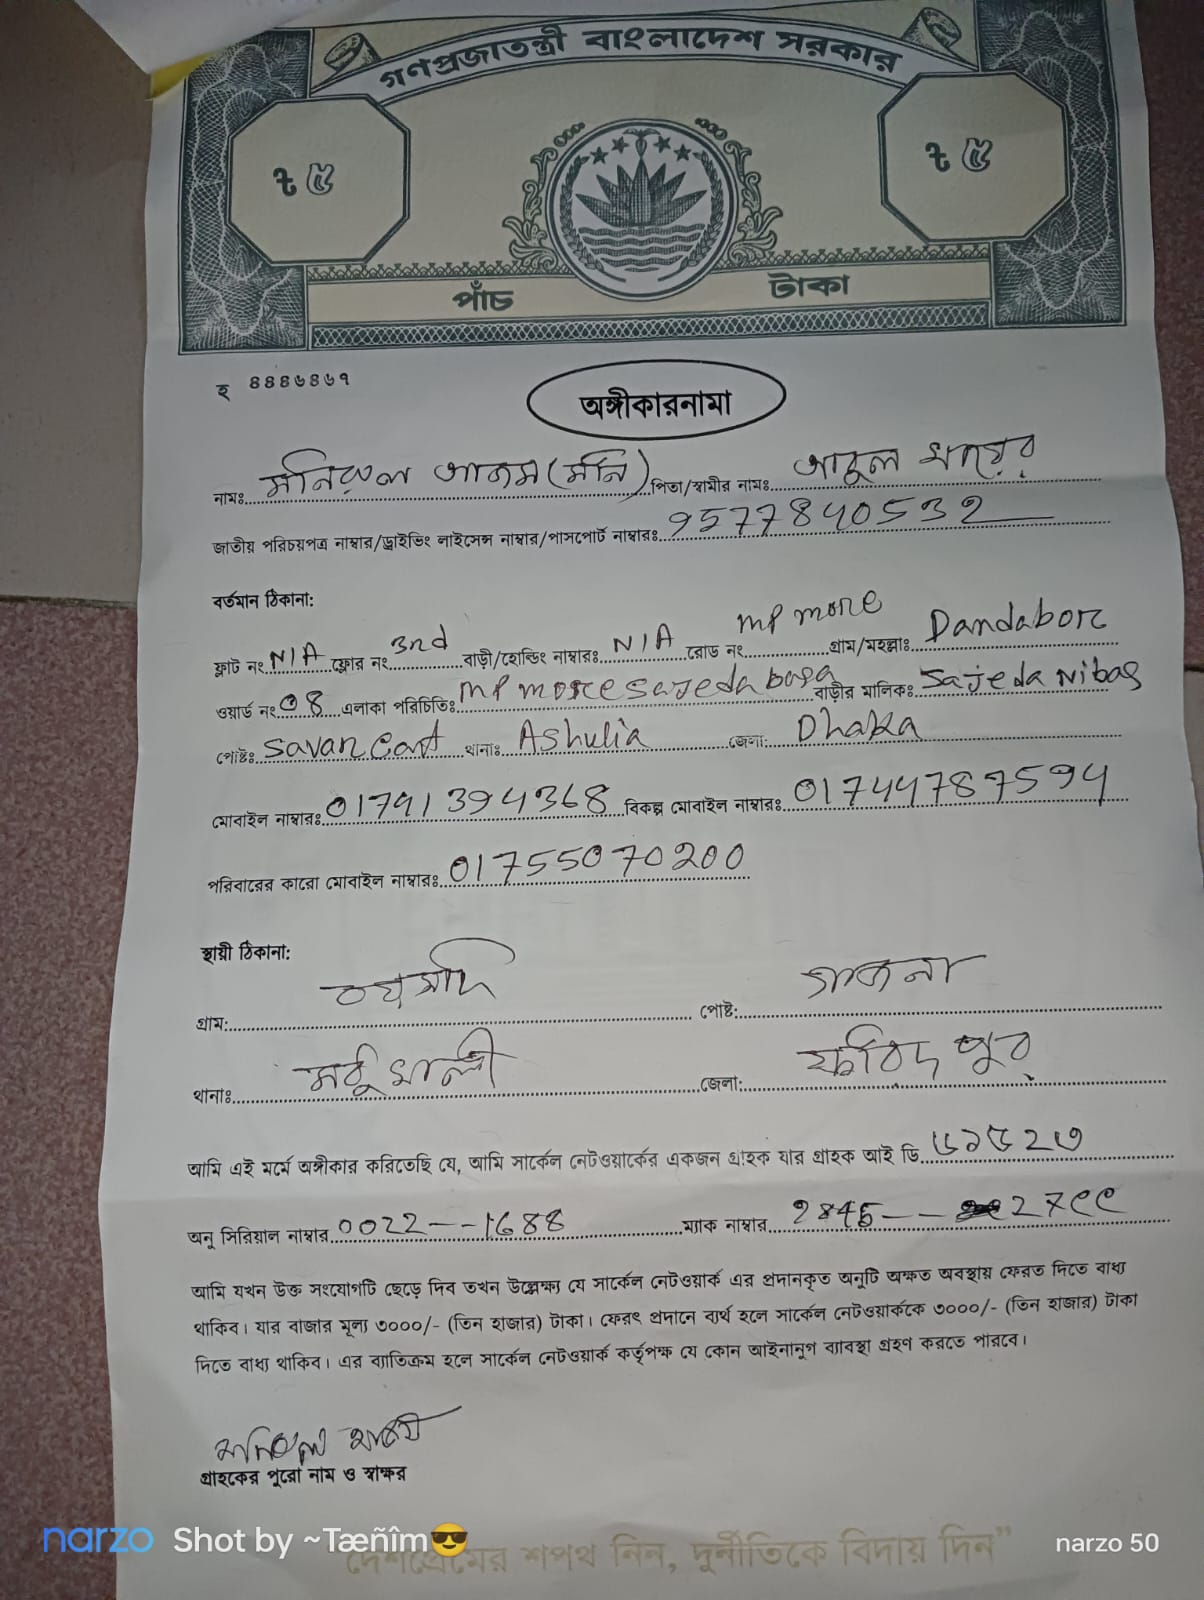 গণপ্রজাতন্ত্রী বাংলাদেশ সরকার
৳ ৫ ৳ ৫
পাঁচ টাকা
হ ৪৪৪৬৪৬৭
অঙ্গীকারনামা
নামঃ মনিরুল আজম (মনি) পিতা/স্বামীর নামঃ আবুল খায়ের
জাতীয় পরিচয়পত্র নাম্বার/ড্রাইভিং লাইসেন্স নাম্বার/পাসপোর্ট নাম্বারঃ 9577840532
বর্তমান ঠিকানা:
ফ্লাট নং N/A ফ্লোর নং 3nd বাড়ী/হোল্ডিং নাম্বারঃ N/A রোড নং mp more গ্রাম/মহল্লাঃ Dandabor
ওয়ার্ড নং 08 এলাকা পরিচিতিঃ mp more sajeda basa বাড়ীর মালিকঃ Sajeda Nibas
পোষ্টঃ Savar Cant থানাঃ Ashulia জেলা: Dhaka
মোবাইল নাম্বারঃ 01791394368 বিকল্প মোবাইল নাম্বারঃ 01744787594
পরিবারের কারো মোবাইল নাম্বারঃ 01755070200
স্থায়ী ঠিকানা:
গ্রাম: পোষ্ট: গাজনা
থানাঃ মধুখালী জেলা: ফরিদপুর
আমি এই মর্মে অঙ্গীকার করিতেছি যে, আমি সার্কেল নেটওয়ার্কের একজন গ্রাহক যার গ্রাহক আই ডি. ৬১৫২৩
অনু সিরিয়াল নাম্বার 0022--1688 ম্যাক নাম্বার 2846-- 27ee
আমি যখন উক্ত সংযোগটি ছেড়ে দিব তখন উল্লেক্ষ্য যে সার্কেল নেটওয়ার্ক এর প্রদানকৃত অনুটি অক্ষত অবস্থায় ফেরত দিতে বাধ্য
থাকিব। যার বাজার মূল্য ৩০০০/- (তিন হাজার) টাকা। ফেরৎ প্রদানে ব্যর্থ হলে সার্কেল নেটওয়ার্ককে ৩০০০/- (তিন হাজার) টাকা
দিতে বাধ্য থাকিব। এর ব্যাতিক্রম হলে সার্কেল নেটওয়ার্ক কর্তৃপক্ষ যে কোন আইনানুগ ব্যাবস্থা গ্রহণ করতে পারবে।
মনিরুল আজম
গ্রাহকের পুরো নাম ও স্বাক্ষর
narzo Shot by ~Tæñîm😎 narzo 50
"দেশপ্রেমের শপথ নিন, দুর্নীতিকে বিদায় দিন"